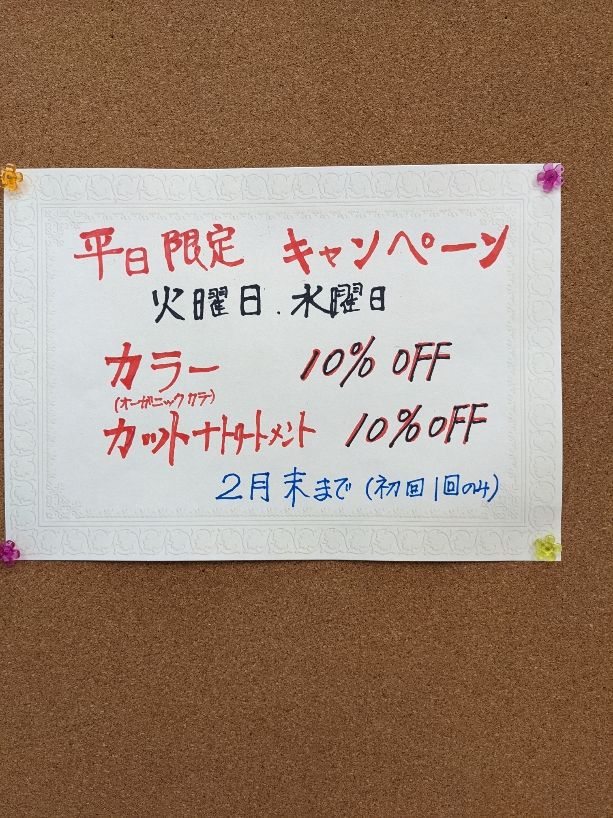 平日限定 キャンペーン
火曜日.水曜日
カラー 10% OFF
(オーガニックカラー)
カット+トリートメント 10%OFF
2月末まで(初回1回のみ)